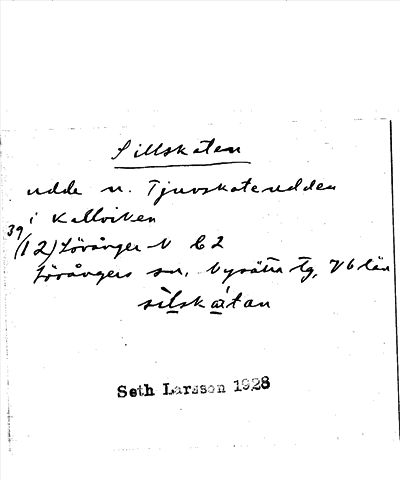 Sillskaten
udde n. Tjuvskateudden
i Kallviken
39
(12) Lövånger N b2
Lövångers sn, Nysätra tg, Vb län
silskatan
Seth Larsson 1928